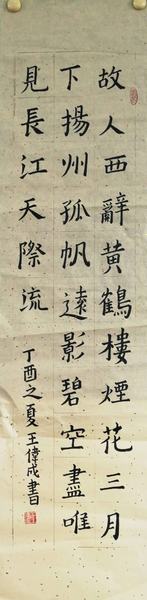 故人西辭黃鶴樓煙花三月
下揚州孤帆遠影碧空盡唯
見長江天際流
丁酉之夏王偉成書